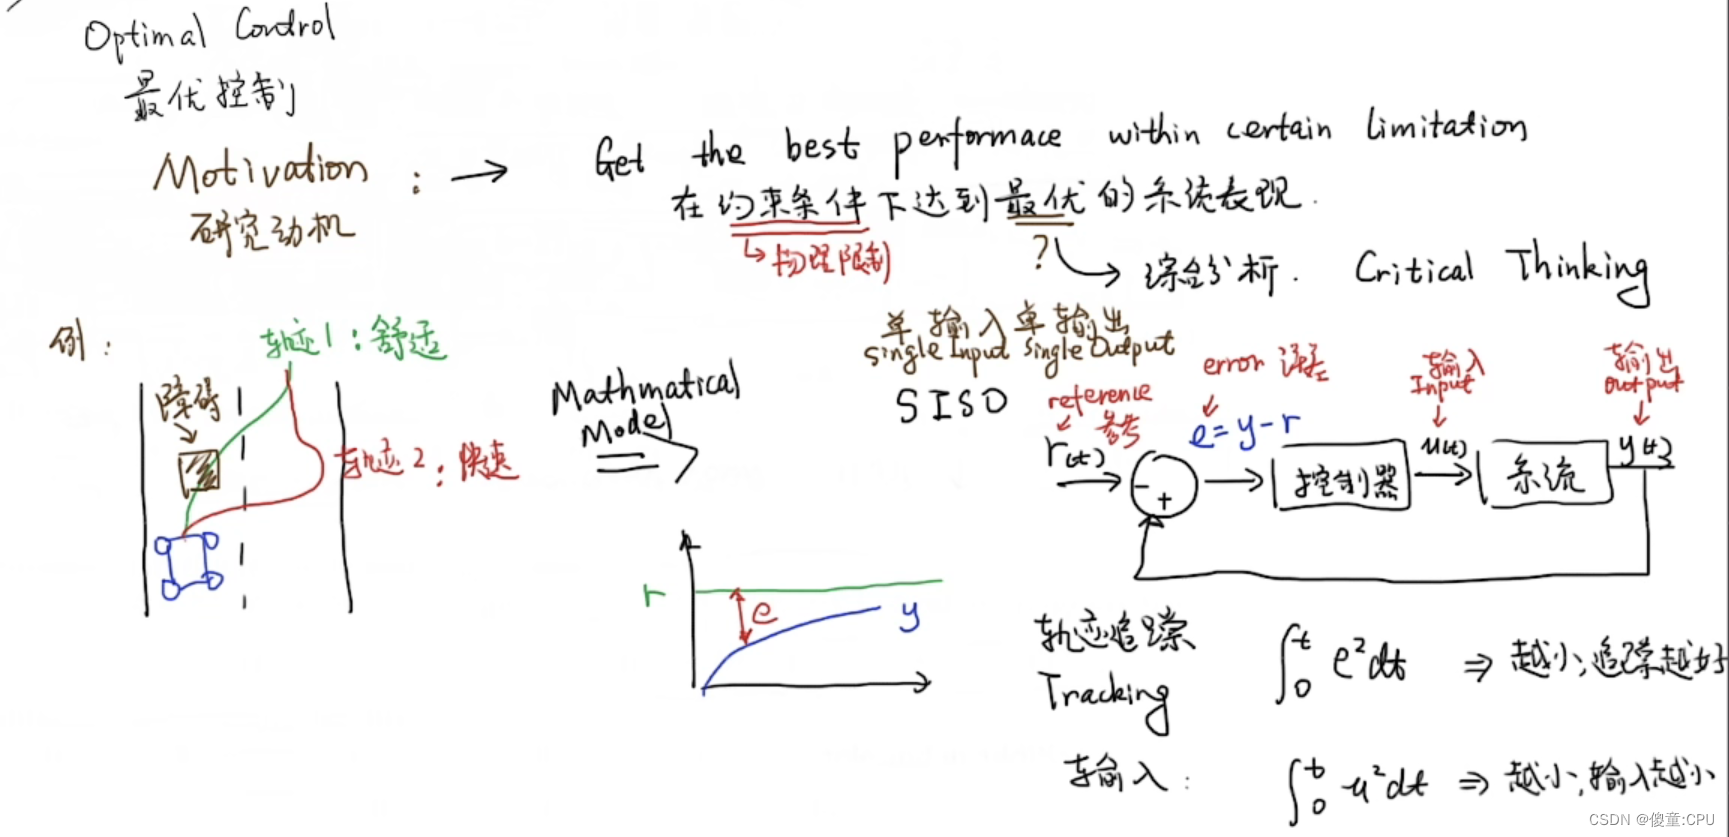 Optimal Control
最优控制
Motivation : →
研究动机
Get the best performace within certain limitation
在约束条件下达到最优的系统表现.
↳物理限制
? → 综合分析. Critical Thinking
例:
轨迹1:舒适
障碍
轨迹2:快速
Mathmatical
Model
单输入单输出
single Input single Output
SISO
reference
参考
r(t)
error 误差
e=y-r
输入
Input
u(t)
输出
output
y(t)
-
+
控制器
系统
r
e
y
轨迹追踪
Tracking
∫₀ᵗ e²dt ⇒ 越小,追踪越好
输入:
∫₀ᵗ u²dt ⇒ 越小,输入越小
CSDN @傻童:CPU